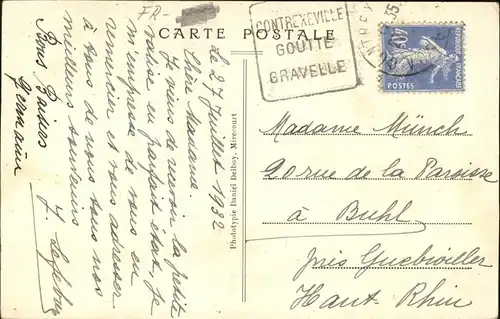 FR-
CARTE POSTALE
CONTREXEVILLE
GOUTTE
GRAVELLE
REPUBLIQUE FRANÇAISE
40c
POSTES
Le 27 Juillet 1932
Chère Madame
Je viens de recevoir la petite
valise en parfait état, je
m'empresse de vous en
remercier et vous adresser
à tous de nous tous nos
meilleurs souvenirs
Y. Lefebvre
Bons Baisers
Germaine
Phototypie Daniel Delboy, Mirecourt
Madame Münch
20 rue de la Paroisse
à Buhl
près Guebwiller
Haut-Rhin